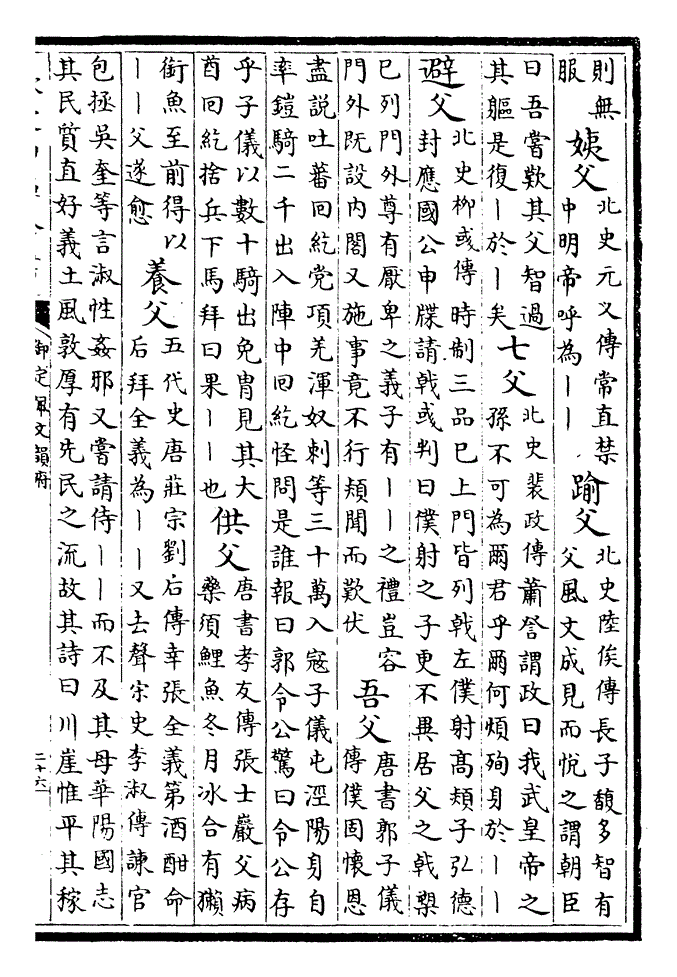 則無
服
姨父
北史元乂傳常直禁
中明帝呼為丨丨
踰父
北史陸俟傳長子馥多智有
父風文成見而悅之謂朝臣
曰吾嘗歎其父智過
其軀是復丨於丨矣
七父
北史裴政傳蕭詧謂政曰我武皇帝之
孫不可為爾君乎爾何煩殉身於丨丨
避父
北史柳彧傳時制三品已上門皆列戟左僕射高熲子弘德
封應國公申牒請戟彧判曰僕射之子更不異居父之戟槊
已列門外尊有厭卑之義子有丨丨之禮豈容
門外既設內閤又施事竟不行熲聞而歎伏
吾父
唐書郭子儀
傳僕固懷恩
盡說吐蕃回紇党項羌渾奴剌等三十萬入寇子儀屯涇陽身自
率鎧騎二千出入陣中回紇怪問是誰報曰郭令公驚曰令公存
乎子儀以數十騎出免胄見其大
酋回紇捨兵下馬拜曰果丨丨也
供父
唐書孝友傳張士巖父病
藥須鯉魚冬月冰合有獺
銜魚至前得以
丨丨父遂愈
養父
五代史唐莊宗劉后傳幸張全義第酒酣命
后拜全義為丨丨又去聲宋史李淑傳諫官
包拯吳奎等言淑性姦邪又嘗請侍丨丨而不及其母華陽國志
其民質直好義土風敦厚有先民之流故其詩曰川崖惟平其稼
御定佩文韻府
二十六